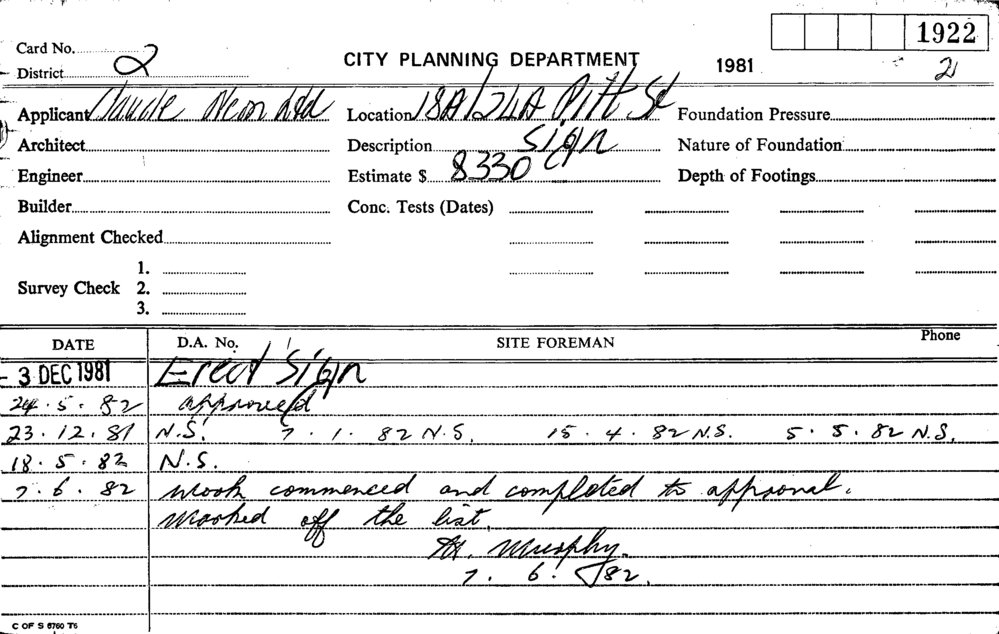 1922
Card No. 2
CITY PLANNING DEPARTMENT 1981 2
District
Applicant Claude Neon Ltd Location 18A/24A Pitt St Foundation Pressure
Architect Description Sign Nature of Foundation
Engineer Estimate $ 8330 Depth of Footings
Builder Conc. Tests (Dates)
Alignment Checked
1.
Survey Check 2.
3.
DATE D.A. No. SITE FOREMAN Phone
- 3 DEC 1981 Erect Sign
24.5.82 approved
23.12.81 N.S. 7.1.82 N.S. 15.4.82 N.S. 5.5.82 N.S.
18.5.82 N.S.
7.6.82 Work commenced and completed to approval.
Marked off the list.
Murphy.
7.6.82.
C OF S 6760 T6